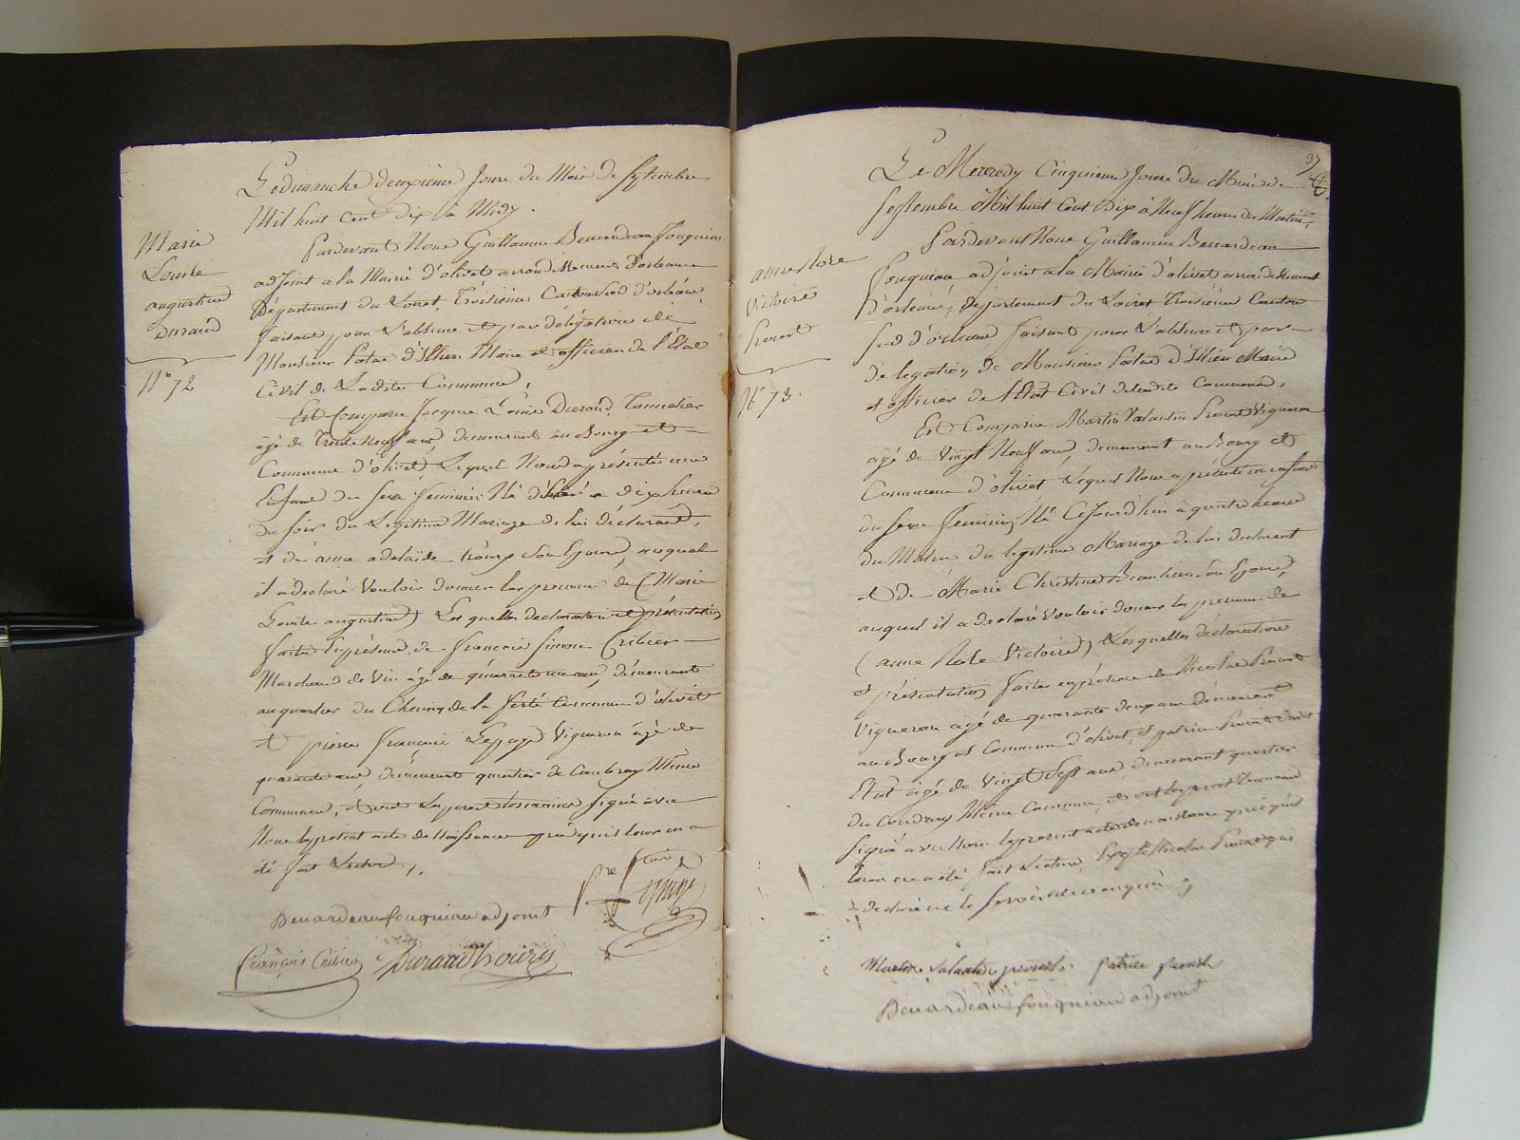 Marie
Louise
augustine
Durand
N° 72
Le dimanche deuxieme Jour du Mois de Septembre
Mil huit Cent dix à Midy.
Pardevant Nous Guillaume Benardeau fouqueau
adjoint a la Mairie d'olivet arrondissement d'orleans
Département du Loiret, Troisieme Canton Sud d'orleans
faisant pour l'absence et par délégation de
Monsieur Potau d'Illiers Maire et officier de l'État
Civil de Ladite Commune,
Est Comparu Jacques Louis Durand, Tonnelier
agé de Trente Neuf ans, demeurant au bourg et
Commune d'olivet, Lequel Nous a présenté une
Enfant du sexe feminin Né a dix heures
du soir du Legitime Mariage de lui déclarant,
et de anne adelaïde son Epouse, auquel
il a declaré Vouloir donner les prenoms de (Marie
Louise augustine) Les quelles declaration et présentation
faite En présence de françois Simon Cribier
Marchand de Vin agé de quarante ans, demeurant
au quartier du Chemin de la ferté Commune d'olivet
et pierre françois Lepage Vigneron agé de
ans demeurant quartier de Même
Commune, et ont Les present temoins signé avec
Nous le present acte de Naissance après qu'il leur en a
été fait Lecture,.
Benardeau fouqueau adjoint
françois Cribier Durand Louis
37
anne Rose
Victoire
Proust
N° 73.
Le Mercredy Cinquieme Jour du Mois de
Septembre Mil huit Cent Dix à Neuf heures du Matin,
Pardevant Nous Guillaume Benardeau
fouqueau adjoint a la Mairie d'olivet arrondissement
d'orleans, département du Loiret Troisieme Canton
Sud d'orleans faisant pour l'absence et par
délégation de Monsieur Potau d'Illiers Maire
et officier de l'État Civil de ladite Commune,
Est Comparu Martin Valentin Proust Vigneron
agé de Vingt Neuf ans, demeurant au bourg et
Commune d'olivet Lequel Nous a présenté un enfant
du sexe feminin, Né Cejourd'hui a quatre heures
du Matin du legitime Mariage de lui declarant
et De Marie Christine Beaulieu Son Epouse,
auquel il a declaré Vouloir donner les prenoms de
(anne Rose Victoire) Lesquelles declaration
et présentation faites en présence de Nicolas Proust
Vigneron agé de quarante deux ans demeurant
au bourg et Commune d'olivet, et patrice Proust
Etat agé de Vingt Sept ans, demeurant quartier
du Coudray Même Commune, et ont les present Temoins
signé avec Nous le present acte de naissance après qu'il
leur en a été fait Lecture, Excepté Nicolas Proust qui
a declaré ne le savoir de ce enquis,
Martin Valentin proust patrice proust
Benardeau fouqueau adjoint